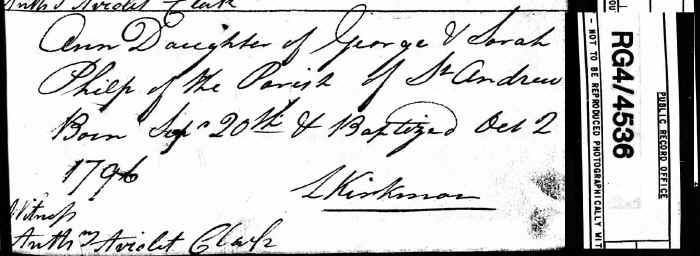 Ann Daughter of George & Sarah
Philp of the Parish of St Andrew
Born Sepr 20th & Baptized Oct 2
1796
L Kirkman
Witness
Anthy Aviolet Clark
PUBLIC RECORD OFFICE
RG4/4536
- NOT TO BE REPRODUCED PHOTOGRAPHICALLY WIT